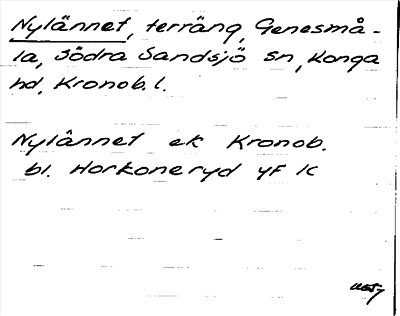 Nylännet, terräng, Genesmå-
la, Södra Sandsjö sn, Konga
hd, Kronob. l.
Nylännet ek Kronob.
bl. Horkoneryd 4F 1c